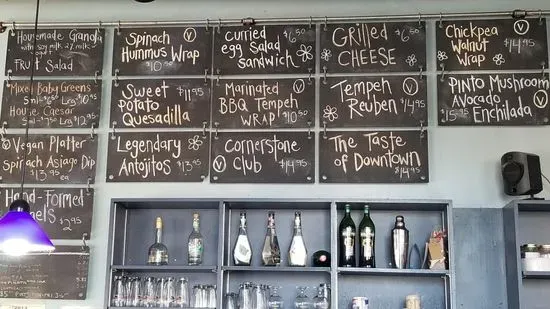 Homemade Granola
with soy milk, 2% milk
Fruit Salad
Mixed Baby Greens
House Caesar
Vegan Platter
Spinach Asiago Dip
$13.95 ea
Hand-Formed
$2.95
Spinach V
Hummus Wrap
$10.50
Sweet $11.95
Potato
Quesadilla
Legendary
Antojitos $13.95
Curried $6.50
egg Salad
Sandwich
Marinated V
BBQ Tempeh
Wrap $10.50
Cornerstone
V Club $14.95
Grilled $6.50
Cheese
Tempeh V
Reuben $14.95
The Taste
of Downtown
$14.95
Chickpea V
Walnut $14.95
Wrap
Pinto Mushroom
Avocado V
$15.95 Enchilada